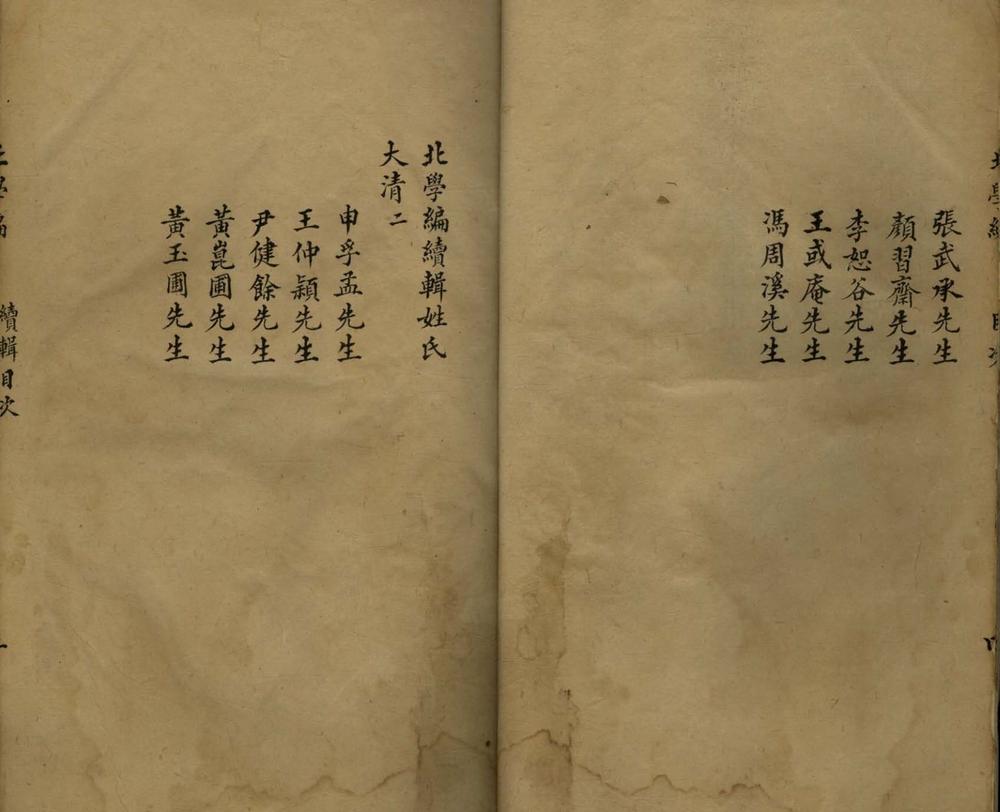 張武承先生
顏習齋先生
李恕谷先生
王或庵先生
馮周溪先生
北學編續輯姓氏
大清二
申孚孟先生
王仲穎先生
尹健餘先生
黃崑圃先生
黃玉圃先生
續輯目次